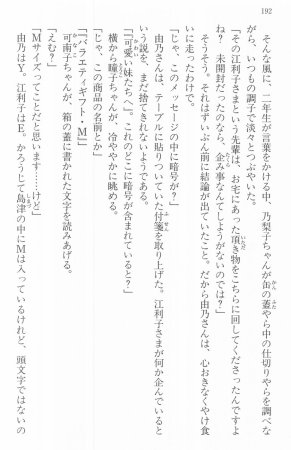 192
そんな風に、二年生が言葉をかける中、乃梨子ちゃんが缶の蓋やら中の仕切りやらを調べな
がら、いつもの調子で淡々とつぶやいた。
「その江利子さまという先輩は、お宅にあった頂き物をこちらに回してくださったんですよ
ね? 未開封だったのなら、企み事なんてしようがないのでは?」
そうそう。それはずいぶん前に結論が出ていたこと。だから由乃さんは、心おきなくやけ食
いに走ったわけで。
「じゃ、このメッセージの中に暗号が?」
由乃さんは、テーブルに貼りついていた付箋を取り上げた。江利子さまが何か企んでいると
いう説を、まだ捨てきれないようである。
「『可愛い妹たちへ』。これのどこに暗号が含まれていると?」
横から瞳子ちゃんが、冷ややかに眺める。
「じゃ、この商品の名前とか」
「『バラエティギフト・M』」
可南子ちゃんが、箱の蓋に書かれた文字を読みあげる。
「えむ?」
「Mサイズってことだと思います……けど」
由乃はY。江利子はE。かろうじて島津の中にMは入っているけれど、頭文字ではないの